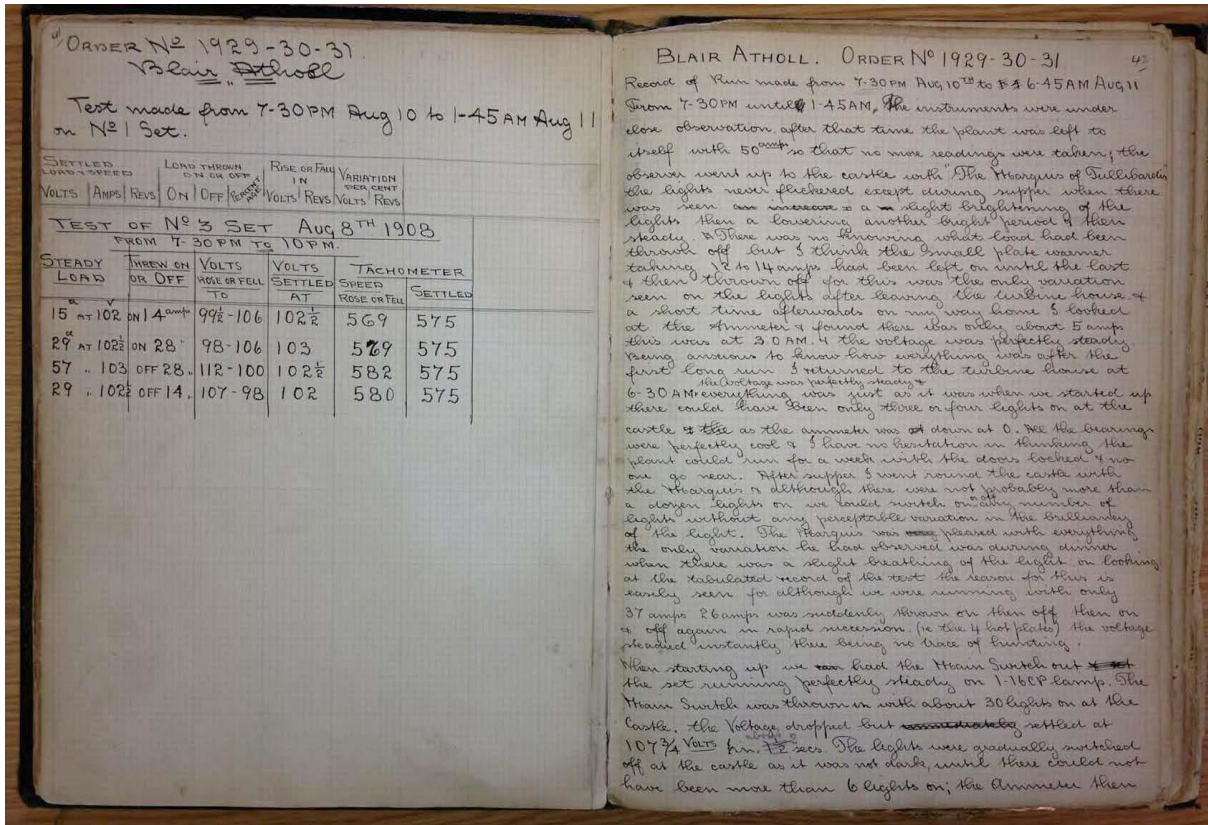 41
ORDER Nº 1929-30-31.
Blair Atholl
Test made from 7-30PM Aug 10 to 1-45AM Aug 11
on Nº 1 Set.
SETTLED LOAD & SPEED | LOAD THROWN ON OR OFF | RISE OR FALL IN | VARIATION PER CENT
VOLTS | AMPS | REVS | ON | OFF | PERCENTAGE | VOLTS | REVS | VOLTS | REVS
TEST OF Nº 3 SET AUG 8TH 1908
FROM 7-30PM TO 10PM.
STEADY LOAD | THREW ON OR OFF | VOLTS ROSE OR FELL TO | VOLTS SETTLED AT | TACHOMETER
SPEED ROSE OR FELL | SETTLED
15 a AT 102 v | ON 14 amp | 99½-106 | 102½ | 569 | 575
29 a AT 102½ | ON 28 " | 98-106 | 103 | 569 | 575
57 " 103 | OFF 28 " | 112-100 | 102½ | 582 | 575
29 " 102½ | OFF 14 " | 107-98 | 102 | 580 | 575
BLAIR ATHOLL. ORDER Nº 1929-30-31
42
Record of Run made from 7-30PM AUG 10TH to 6-45AM AUG 11
From 7-30PM until 1-45AM, the instruments were under
close observation after that time the plant was left to
itself with 50 amps so that no more readings were taken; the
observer went up to the castle with "The Marquis of Tullibardin"
the lights never flickered except during supper when there
was seen an increase & a slight brightening of the
lights then a lowering another bright period & then
steady. There was no knowing what load had been
thrown off but I think the small plate warmer
taking 12 to 14 amps had been left on until the last
& then thrown off for this was the only variation
seen on the lights after leaving the turbine house &
a short time afterwards on my way home I looked
at the Ammeter & found there was only about 5 amps
this was at 3.0 AM. & the voltage was perfectly steady.
Being anxious to know how everything was after the
first long run I returned to the turbine house at
the voltage was perfectly steady &
6-30 AM everything was just as it was when we started up
there could have been only three or four lights on at the
castle as the ammeter was down at 0. All the bearings
were perfectly cool & I have no hesitation in thinking the
plant could run for a week with the doors locked & no
one go near. After supper I went round the castle with
the Marquis & although there were not probably more than
a dozen lights on we could switch on or off any number of
lights without any perceptable variation in the brilliancy
of the light. The Marquis was pleased with everything
the only variation he had observed was during dinner
when there was a slight breathing of the light on looking
at the tabulated record of the test the reason for this is
easily seen for although we were running with only
37 amps 26 amps was suddenly thrown on then off then on
& off again in rapid succession. (ie the 4 hot plates) the voltage
steadied instantly there being no trace of hunting.
When starting up we had the Main Switch out
the set running perfectly steady on 1-16CP lamp. The
Main Switch was thrown in with about 30 lights on at the
Castle. the Voltage dropped but immediately settled at
107¾ VOLTS in about secs. The lights were gradually switched
off at the castle as it was not dark, until there could not
have been more than 6 lights on; the Ammeter then